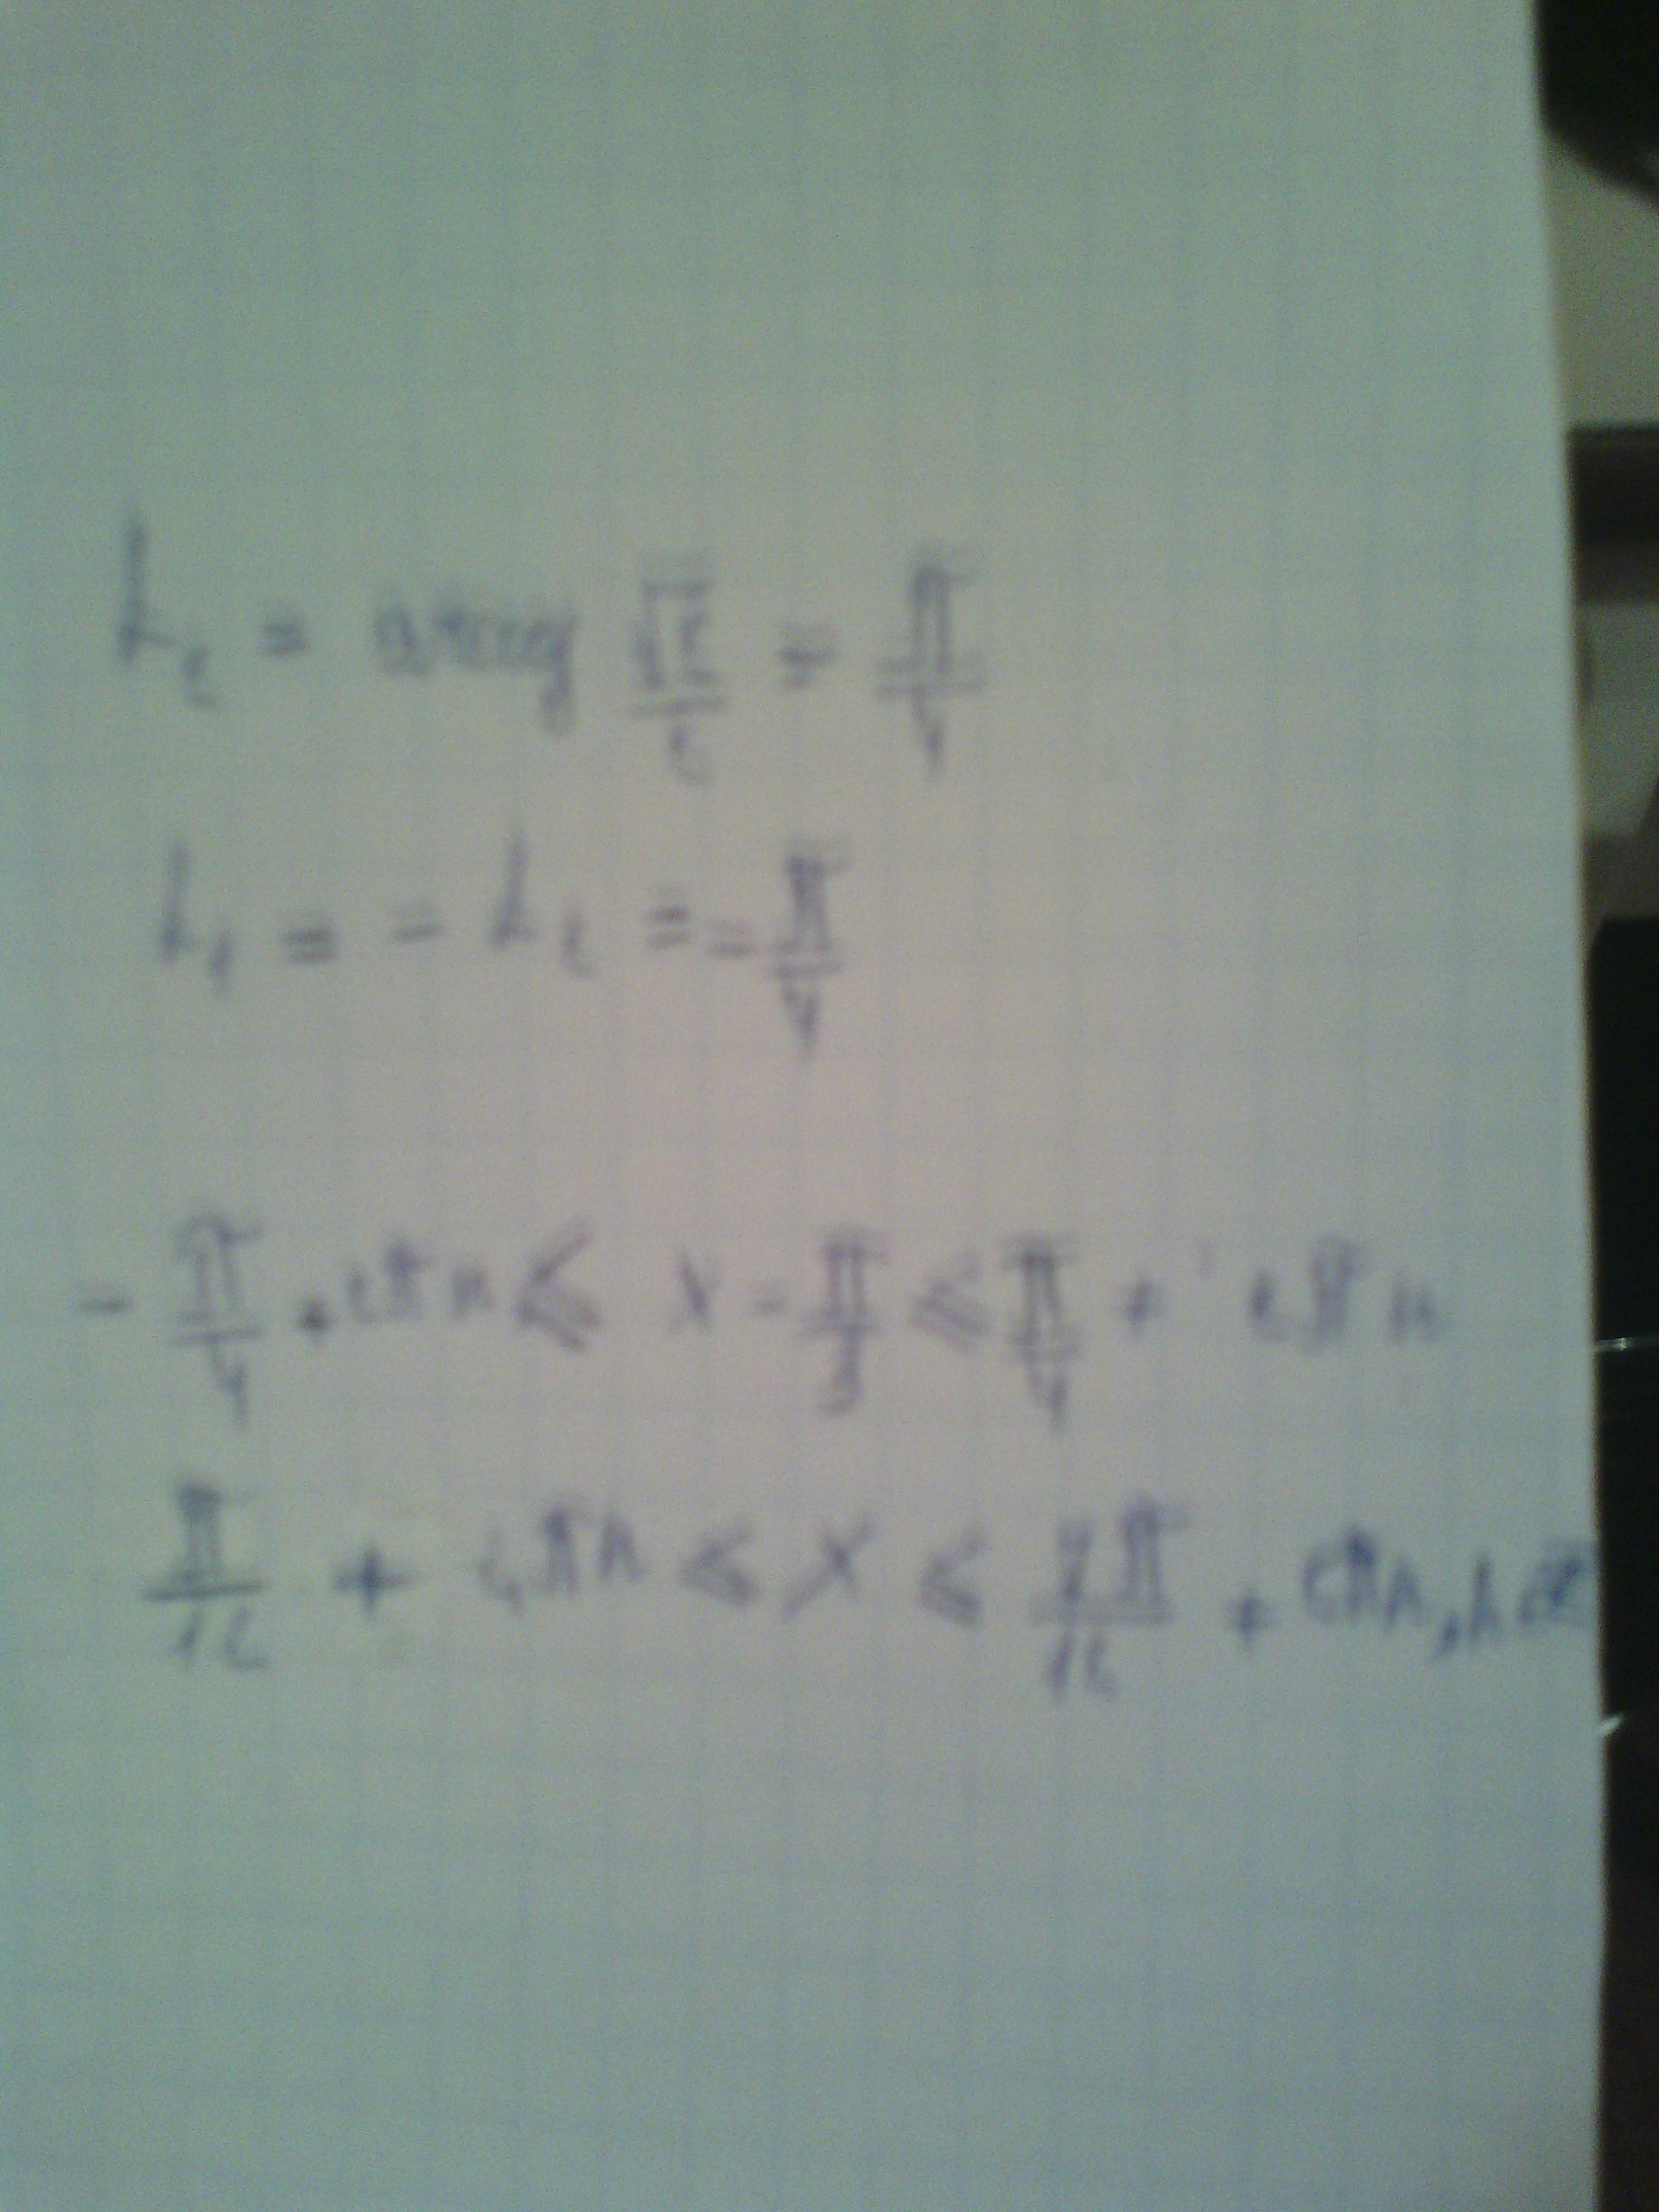 L₂ = arccos √2/2 = π/4
L₁ = - L₂ = - π/4
- π/4 + 2πn ≤ x - π/3 ≤ π/4 + 2πn
π/12 + 2πn ≤ x ≤ 7π/12 + 2πn, n ∈